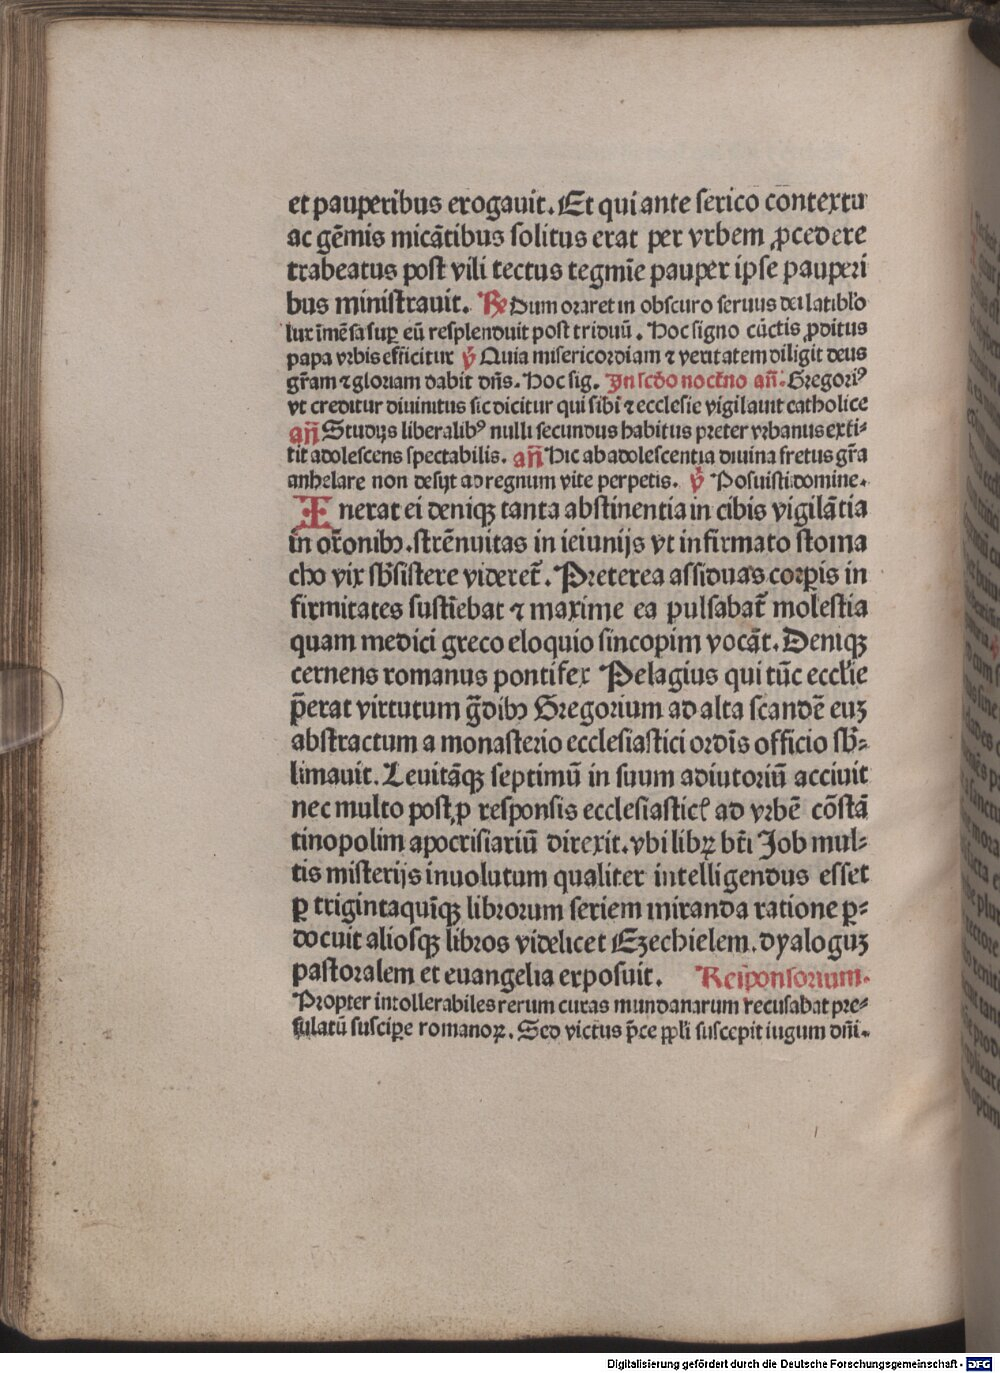 et pauperibus erogauit. Et qui ante serico contextu
ac gēmis micātibus solitus erat per vrbem ꝓcedere
trabeatus post vili tectus tegmīe pauper ipse pauperi
bus ministrauit. ℞ Dum oraret in obscuro seruus dei latibl'o
lux īmēsa suꝑ eū resplenduit post triduū. Hoc signo cūctis ꝓditus
papa vrbis efficitur ℣ Quia misericordiam ⁊ veritatem diligit deus
gr̄am ⁊ gloriam dabit dn̄s. Hoc sig. In scd̄o noct̄no an̄. Gregoriꝰ
vt creditur diuinitus sic dicitur qui sibi ⁊ ecclesie vigilauit catholice
an̄ Studijs liberalibꝰ nulli secundus habitus preter vrbanus exti⸗
tit adolescens spectabilis. an̄ Hic ab adolescentia diuina fretus gr̄a
anhelare non desijt ad regnum vite perpetis. ℣ Posuisti domine.
Inerat ei deniqꝫ tanta abstinentia in cibis vigilātia
in or̄onibꝫ. strēnuitas in ieiunijs vt infirmato stoma
cho vix sb̄sistere videret̄. Preterea assiduas corꝑis in
firmitates sustīebat ⁊ maxime ea pulsabat̄ molestia
quam medici greco eloquio sincopim vocāt. Deniqꝫ
cernens romanus pontifex Pelagius qui tūc eccl'ie
p̄erat virtutum gͣdibꝫ Gregorium ad alta scandē euꝫ
abstractum a monasterio ecclesiastici ordīs officio sb̄⸗
limauit. Leuitāqꝫ septimū in suum adiutoriū acciuit
nec multo post ꝓ responsis ecclesiasticꝭ ad vrbē cōstā
tinopolim apocrisiariū direxit. vbi libꝝ bt̄i Job mul⸗
tis misterijs inuolutum qualiter intelligendus esset
ꝑ trigintaquīqꝫ librorum seriem miranda ratione ꝑ⸗
docuit aliosqꝫ libros videlicet Ezechielem. dyaloguꝫ
pastoralem et euangelia exposuit. Responsorium.
Propter intollerabiles rerum curas mundanarum recusabat pre⸗
sulatū susciꝑe romanoꝝ. Sed victus p̄ce ppl'i suscepit iugum dn̄i.
Digitalisierung gefördert durch die Deutsche Forschungsgemeinschaft - DFG